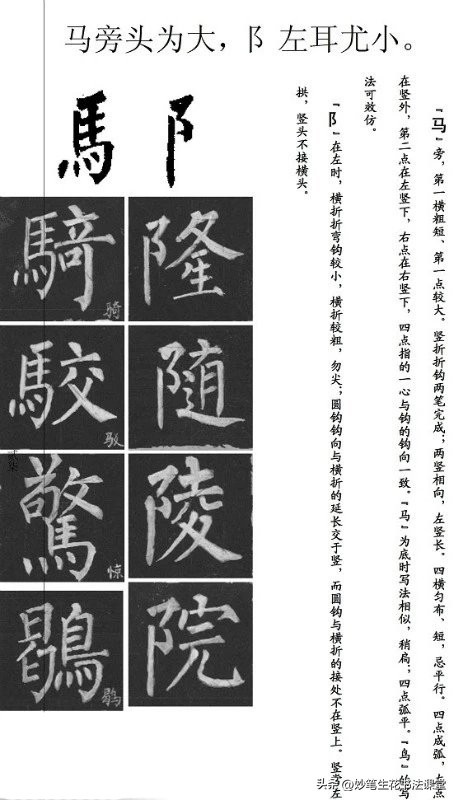 马旁头为大，阝左耳尤小。
"马"旁，第一横粗短、第一点较大。竖折折钩两笔完成；两竖相向，左竖长。四横匀布、短，忌平行。四点成弧，左点
在竖外，第二点在左竖下，右点在右竖下，四点指的一心与钩的钩向一致。"马"为底时写法相似，稍扁；四点弧平。"鸟"的写
法可效仿。
"阝"在左时，横折折弯钩较小，横折较粗，勿尖；圆钩钩向与横折的延长交于竖，而圆钩与横折的接处不在竖上。竖常左
拱，竖头不接横头。
馬 阝
騎 骑 隆
駮 随
驚 惊 陵
院
头条 @妙笔生花书法课堂